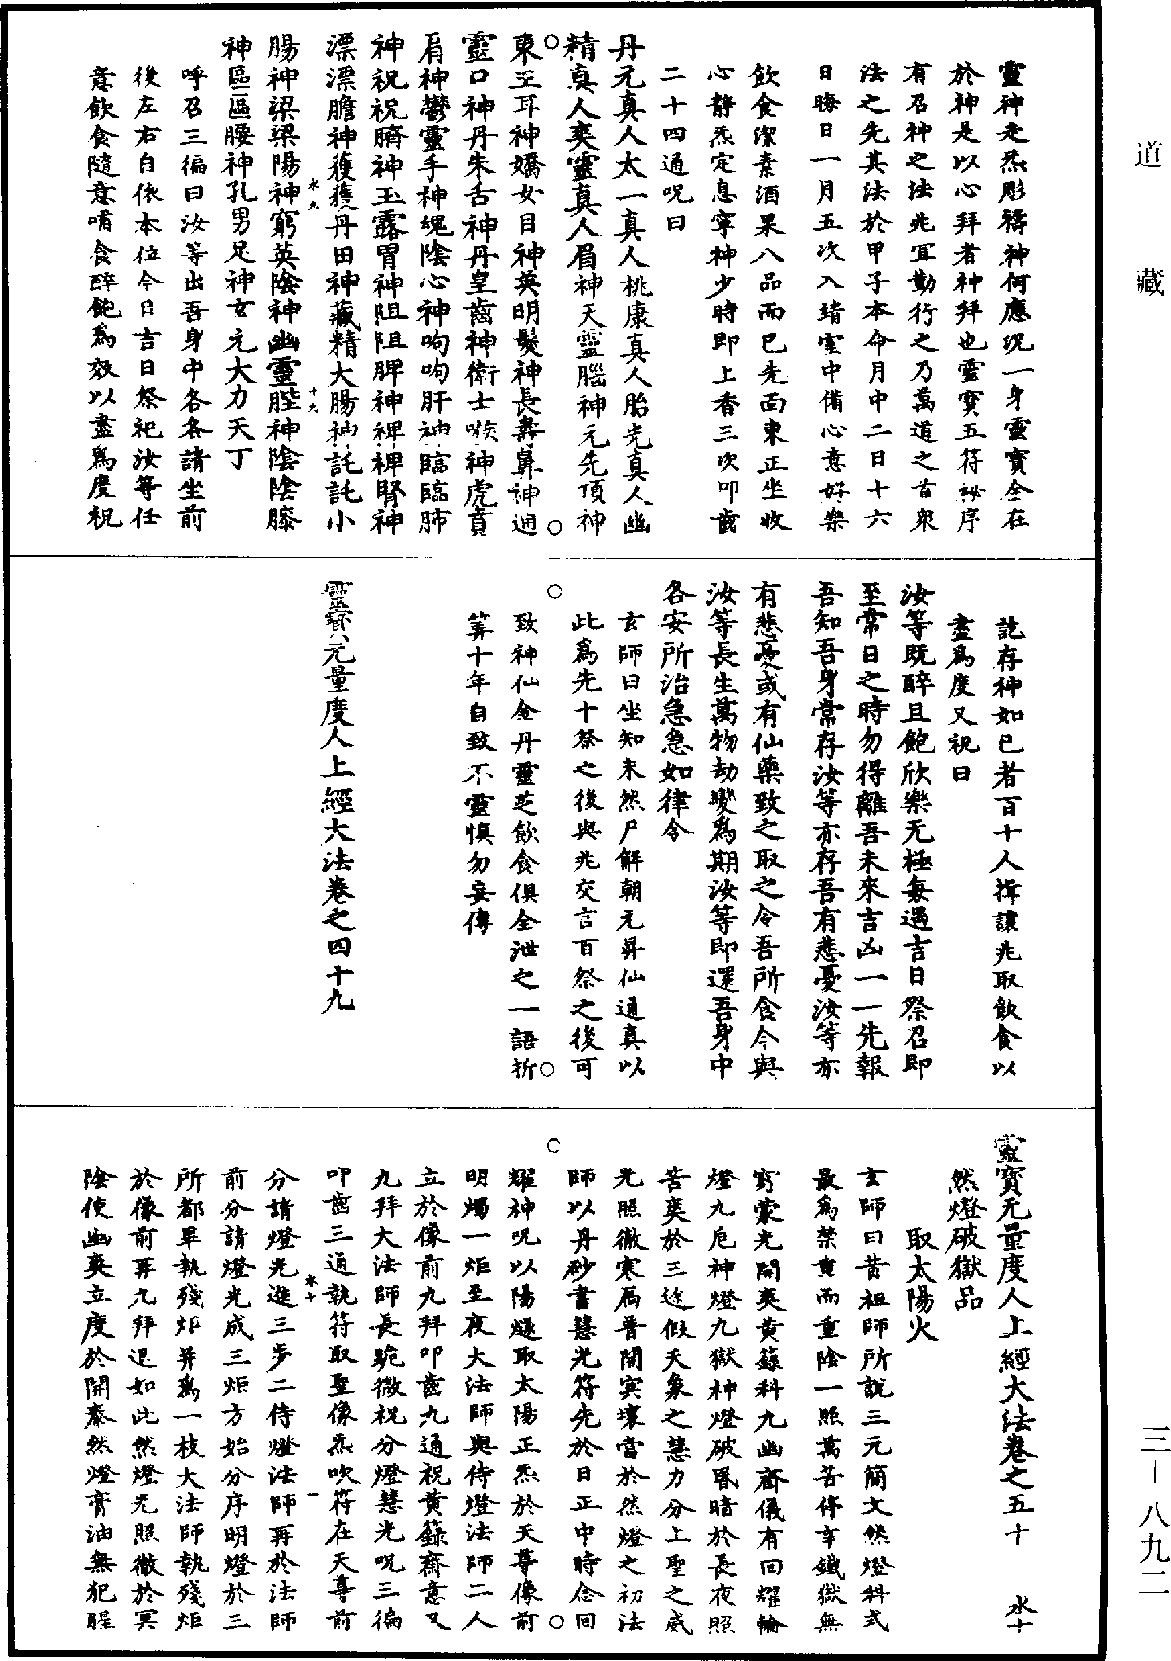 道藏
靈神走炁彫禱神何應況一身靈寶全在
於神是以心拜者神拜也靈寶五符祕序
有召神之法兆宜勤行之乃萬道之首衆
法之先其法於甲子本命月中二日十六
日晦日一月五次入靖室中備心意好樂
飲食潔素酒果八品而已先面東正坐收
心靜炁定息寧神少時即上香三吹叩齒
二十四通呪曰
丹元真人太一真人桃康真人胎光真人幽
精真人爽靈真人眉神天靈腦神元先頂神
東王耳神嬌女目神英明髮神長壽鼻神通
靈口神丹朱舌神丹皇齒神衛士喉神虎賁
肩神鬱靈手神魂陰心神呴呴肝神臨臨肺
神祝祝臍神玉露胃神阻阻脾神裨裨腎神
漂漂膽神獲獲丹田神藏精大腸神託託小
腸神梁梁陽神窮英陰神幽靈䏶神陰陰膝
神區區腰神孔男足神女元大力天丁
呼召三徧曰汝等出吾身中各各請坐前
後左右自依本位今日吉日祭祀汝等任
意飲食隨意嘗食醉飽爲效以盡爲度祝
訖存神如已者百十人揖讓兆取飲食以
盡爲度又祝曰
汝等既醉且飽欣樂无極每遇吉日祭召即
至常日之時勿得離吾未來吉凶一一先報
吾知吾身常存汝等亦存吾有悲憂汝等亦
有悲憂或有仙藥致之取之令吾所食今與
汝等長生萬物劫變爲期汝等即還吾身中
各安所治急急如律令
玄師曰坐知未然尸解朝元昇仙通真以
此爲先十祭之後與兆交言百祭之後可
致神仙金丹靈芝飲食俱全泄之一語折
筭十年自致不靈慎勿妄傳
靈寶无量度人上經大法卷之四十九
靈寶无量度人上經大法卷之五十 水十
然燈破獄品
取太陽火
玄師曰昔祖師所說三元簡文然燈科式
最爲禁重而重陰一照萬苦停辛鐵獄無
窮蒙光開爽黃籙科九幽齋儀有回耀輪
燈九卮神燈九獄神燈破昏暗於長夜照
苦爽於三途假天象之慧力分上聖之威
光照徹寒扃普開冥壤當於然燈之初法
師以丹砂書慧光符先於日正中時念回
耀神呪以陽燧取太陽正炁於天尊像前
明燭一炬至夜大法師與侍燈法師二人
立於像前九拜叩齒九通祝黃籙齋意又
九拜大法師長跪微祝分燈慧光呪三徧
叩齒三通執符取聖像炁吹符在天尊前
分請燈光進三步二侍燈法師再於法師
前分請燈光成三炬方始分序明燈於三
所都畢執殘炬幷爲一枝大法師執殘炬
於像前再九拜退如此然燈光照徹於冥
陰使幽爽立度於開泰然燈膏油無犯腥
水九
十九
水十
一
三—八九二